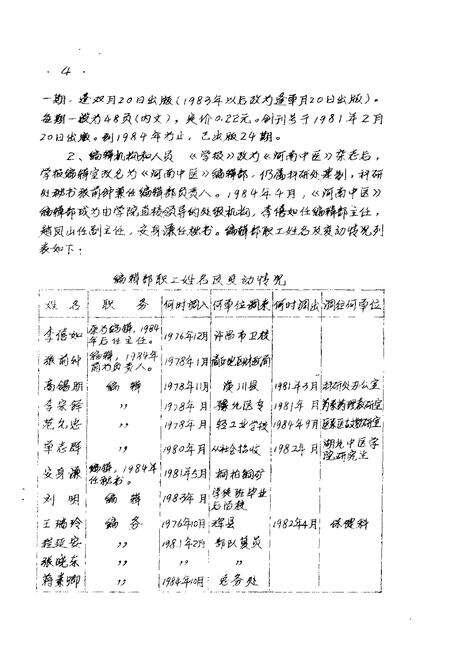 · 4 ·
一期，逢双月20日出版(1983年以后改为逢单月20日出版)。
每期一般为48页(内文)，定价0.22元。创刊号于1981年2月
20日出版。到1984年为止，已出版24期。
2、编辑机构和人员 《学报》改为《河南中医》杂志后，
学报编辑室改名为《河南中医》编辑部，仍属科研处兼制，科研
处秘书张前钟兼任编辑部负责人。1984年4月，《河南中医》
编辑部成为由学院直接领导的处级机构，李倍如任编辑部主任，
赵凤山任副主任，安身濂任秘书。编辑部职工姓名及变动情况列
表如下：
编辑部职工姓名及变动情况
姓名 职务 何时调入 何单位调来 何时调出 调往何单位
李倍如 原为编辑，1984年后任主任。 1976年12月 许昌市卫校
张前钟 编辑，1984年前为负责人。 1978年1月
高锡朋 编辑 1978年11月 潢川县 1981年3月 科研处办公室
李荣 〃 1978年 月 1981年 月
范允忠 〃 1978年 月 轻工业学校 1984年9月
单志群 〃 1980年 月 从社会招收 1982年 月 湖北中医学院研究生
安身濂 编辑，1984年任秘书。 1981年5月 桐柏铜矿
刘明 编辑 1983年 月 学徒班毕业后留校
王瑞玲 编务 1976年10月 辉县 1982年4月 保健科
程延安 〃 1981年2月 部队复员
张晓东 〃 〃 〃
蒋素卿 〃 1984年10月 总务处